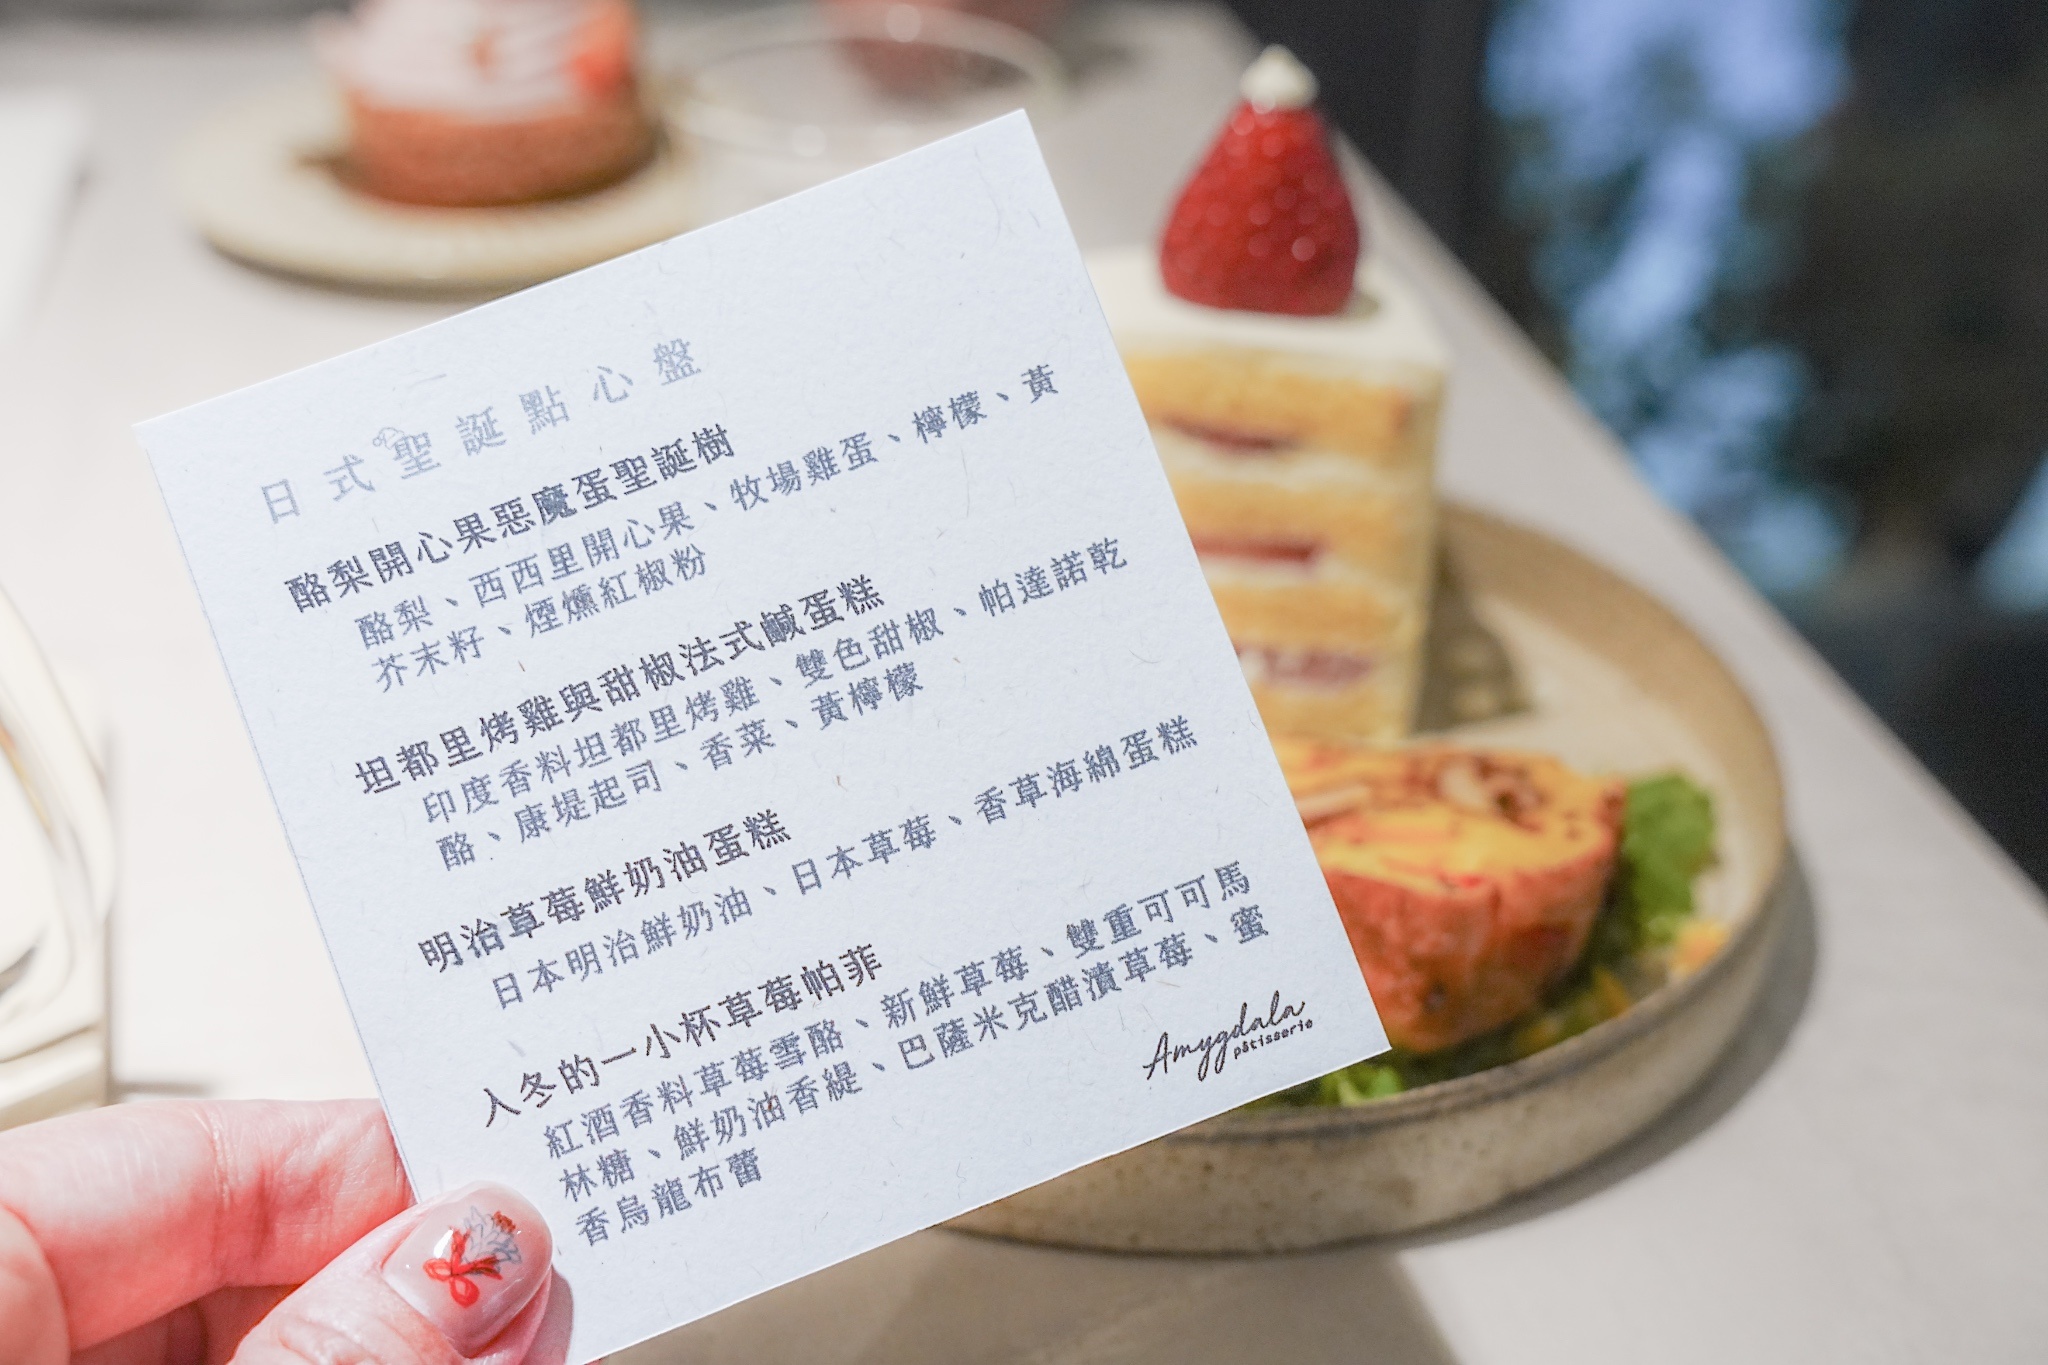 日式聖誕點心盤
酪梨開心果惡魔蛋聖誕樹
酪梨、西西里開心果、牧場雞蛋、檸檬、黃
芥末籽、煙燻紅椒粉
坦都里烤雞與甜椒法式鹹蛋糕
印度香料坦都里烤雞、雙色甜椒、帕達諾乾
酪、康堤起司、香菜、黃檸檬
明治草莓鮮奶油蛋糕
日本明治鮮奶油、日本草莓、香草海綿蛋糕
入冬的一小杯草莓帕菲
紅酒香料草莓雪酪、新鮮草莓、雙重可可馬
林糖、鮮奶油香緹、巴薩米克醋漬草莓、蜜
香烏龍布蕾
Amygdala
pâtisserie